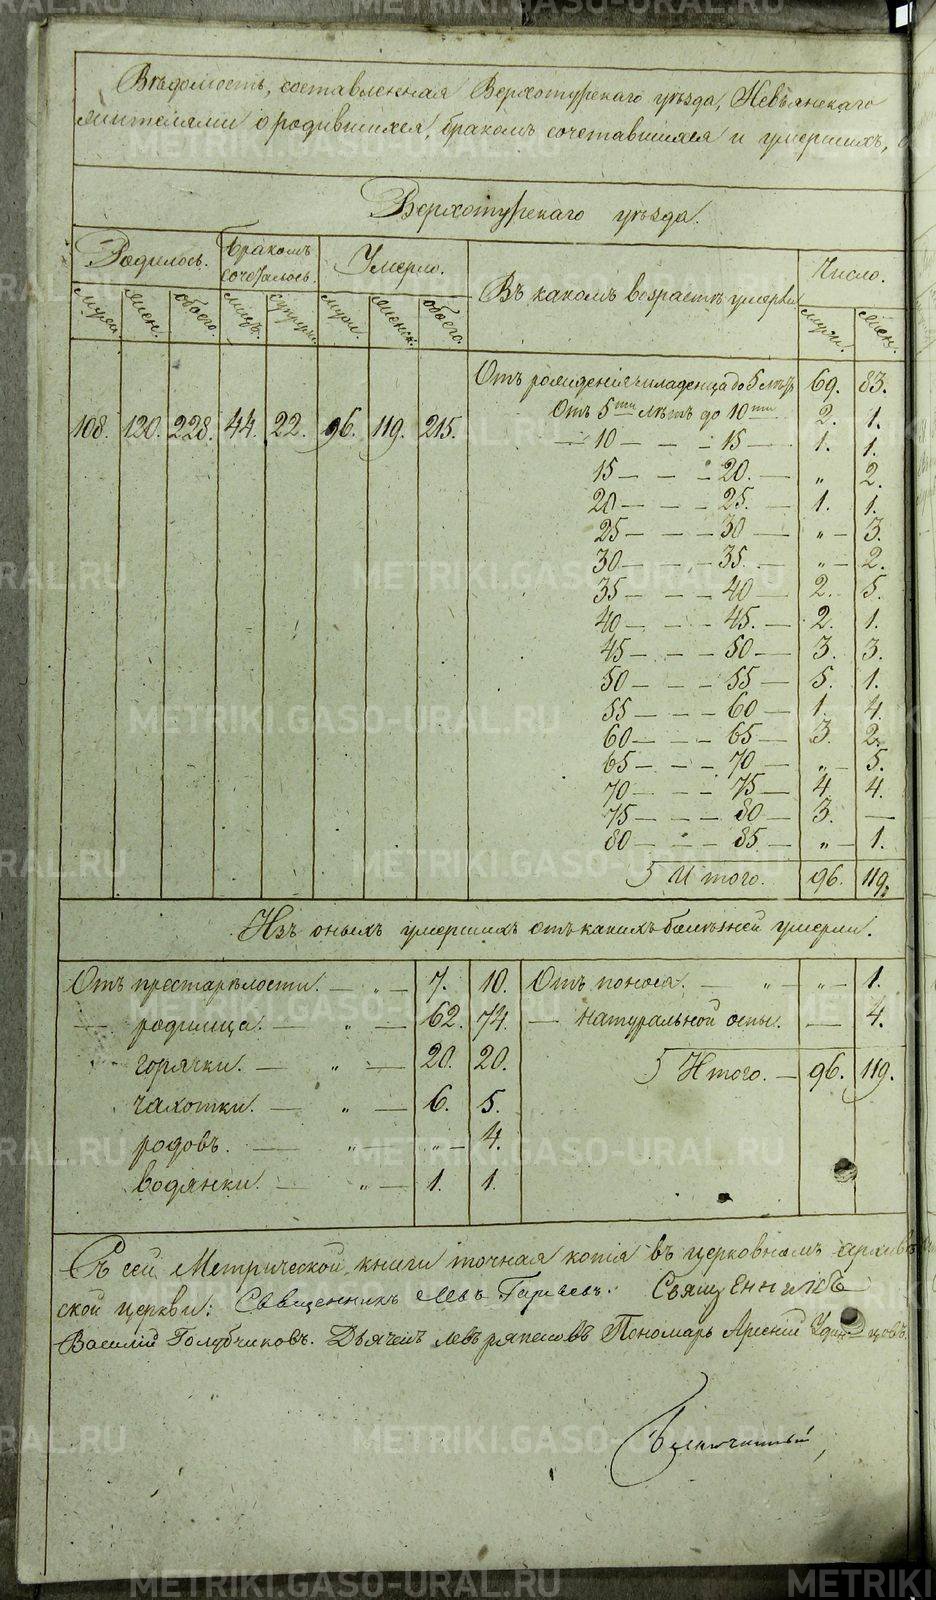 Вѣдомость, составленная Верхотурскаго уѣзда, Невьянскаго
жителями о родившихся, бракомъ сочетавшихся и умершихъ,
Верхотурскаго уѣзда.
Родилось. Бракомъ сочеталось. Умерло. Въ какомъ возрастѣ умерли Число.
мужеи. жен. обоего. мужъ. супруж. муж. женск. обоего. мужи. жен.
Отъ рожденія младенца до 5 лѣтъ 69. 83.
108. 120. 228. 44. 22. 96. 119. 215. Отъ 5ти лѣтъ до 10ти 2. 1.
10 — — - 15 — 1. 1.
15 — — - 20. — „ 2.
20 — — - 25. — 1. 1.
25 — — - 30 — „ — 3.
30 — — - 35. — „ — 2.
35 — — - 40 — 2. 5.
40 — — - 45. — 2. 1.
45 — — - 50 — 3. 3.
50 — — - 55 — 5. 1.
55 — — - 60 — 1. 4.
60 — — - 65 — 3. 2.
65 — — - 70 — „ — 5.
70 — — - 75 — 4. 4.
75 — — - 80 — 3. —
80 — — - 85 — „ — 1.
Итого. 96. 119.
Изъ оныхъ умершихъ отъ какихъ болѣзней умерли.
Отъ престарѣлости. — „ — 7. 10. Отъ поноса. — „ — „ — 1.
— родимца. — „ — 62. 74. — натуральной оспы. — 4.
горячки. — „ — 20. 20. Итого. — 96. 119.
чахотки. — „ — 6. 5.
родовъ. — „ „ — 4.
водянки. — „ — 1. 1.
Съ сей Метрической книги точная копія въ церковномъ архивѣ
ской церкви: Священникъ Левъ Священникъ
Василій Голубчиковъ. Дьячекъ Левъ Пономарь Арсеній Удинцовъ.
METRIKI.GASO-URAL.RU